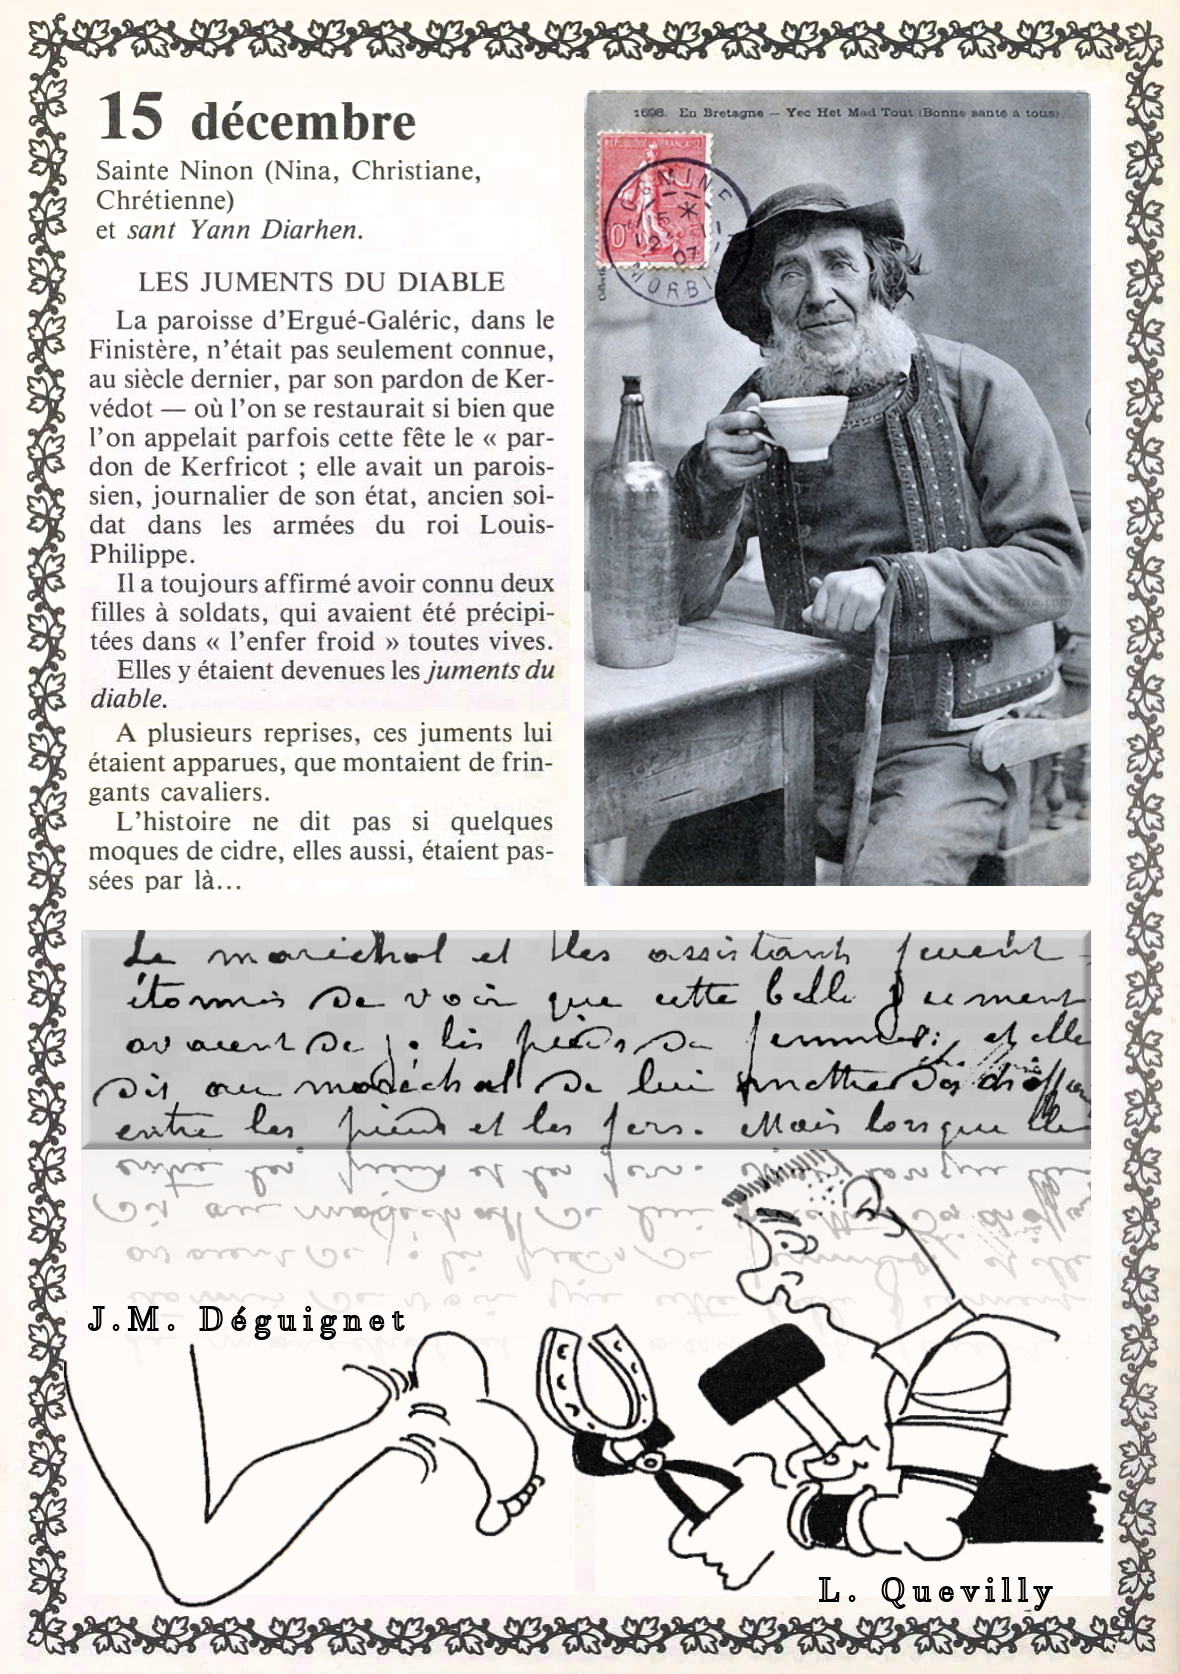 15 décembre
Sainte Ninon (Nina, Christiane,
Chrétienne)
et sant Yann Diarhen.
LES JUMENTS DU DIABLE
La paroisse d'Ergué-Galéric, dans le
Finistère, n'était pas seulement connue,
au siècle dernier, par son pardon de Ker-
védot — où l'on se restaurait si bien que
l'on appelait parfois cette fête le « par-
don de Kerfricot ; elle avait un parois-
sien, journalier de son état, ancien sol-
dat dans les armées du roi Louis-
Philippe.
Il a toujours affirmé avoir connu deux
filles à soldats, qui avaient été précipi-
tées dans « l'enfer froid » toutes vives.
Elles y étaient devenues les juments du
diable.
A plusieurs reprises, ces juments lui
étaient apparues, que montaient de frin-
gants cavaliers.
L'histoire ne dit pas si quelques
moques de cidre, elles aussi, étaient pas-
sées par là...
1698. En Bretagne — Yec Het Mad Tout (Bonne santé à tous)
REPUBLIQUE FRANÇAISE
MINE
07
MORBI
Le maréchal et les assistants furent
étonnés de voir que cette belle jument
avaient de jolis pieds de femmes; et elle
dit au maréchal de lui mettre des
entre les pieds et les fers. Mais lorsque
J.M. Déguignet
L. Quevilly